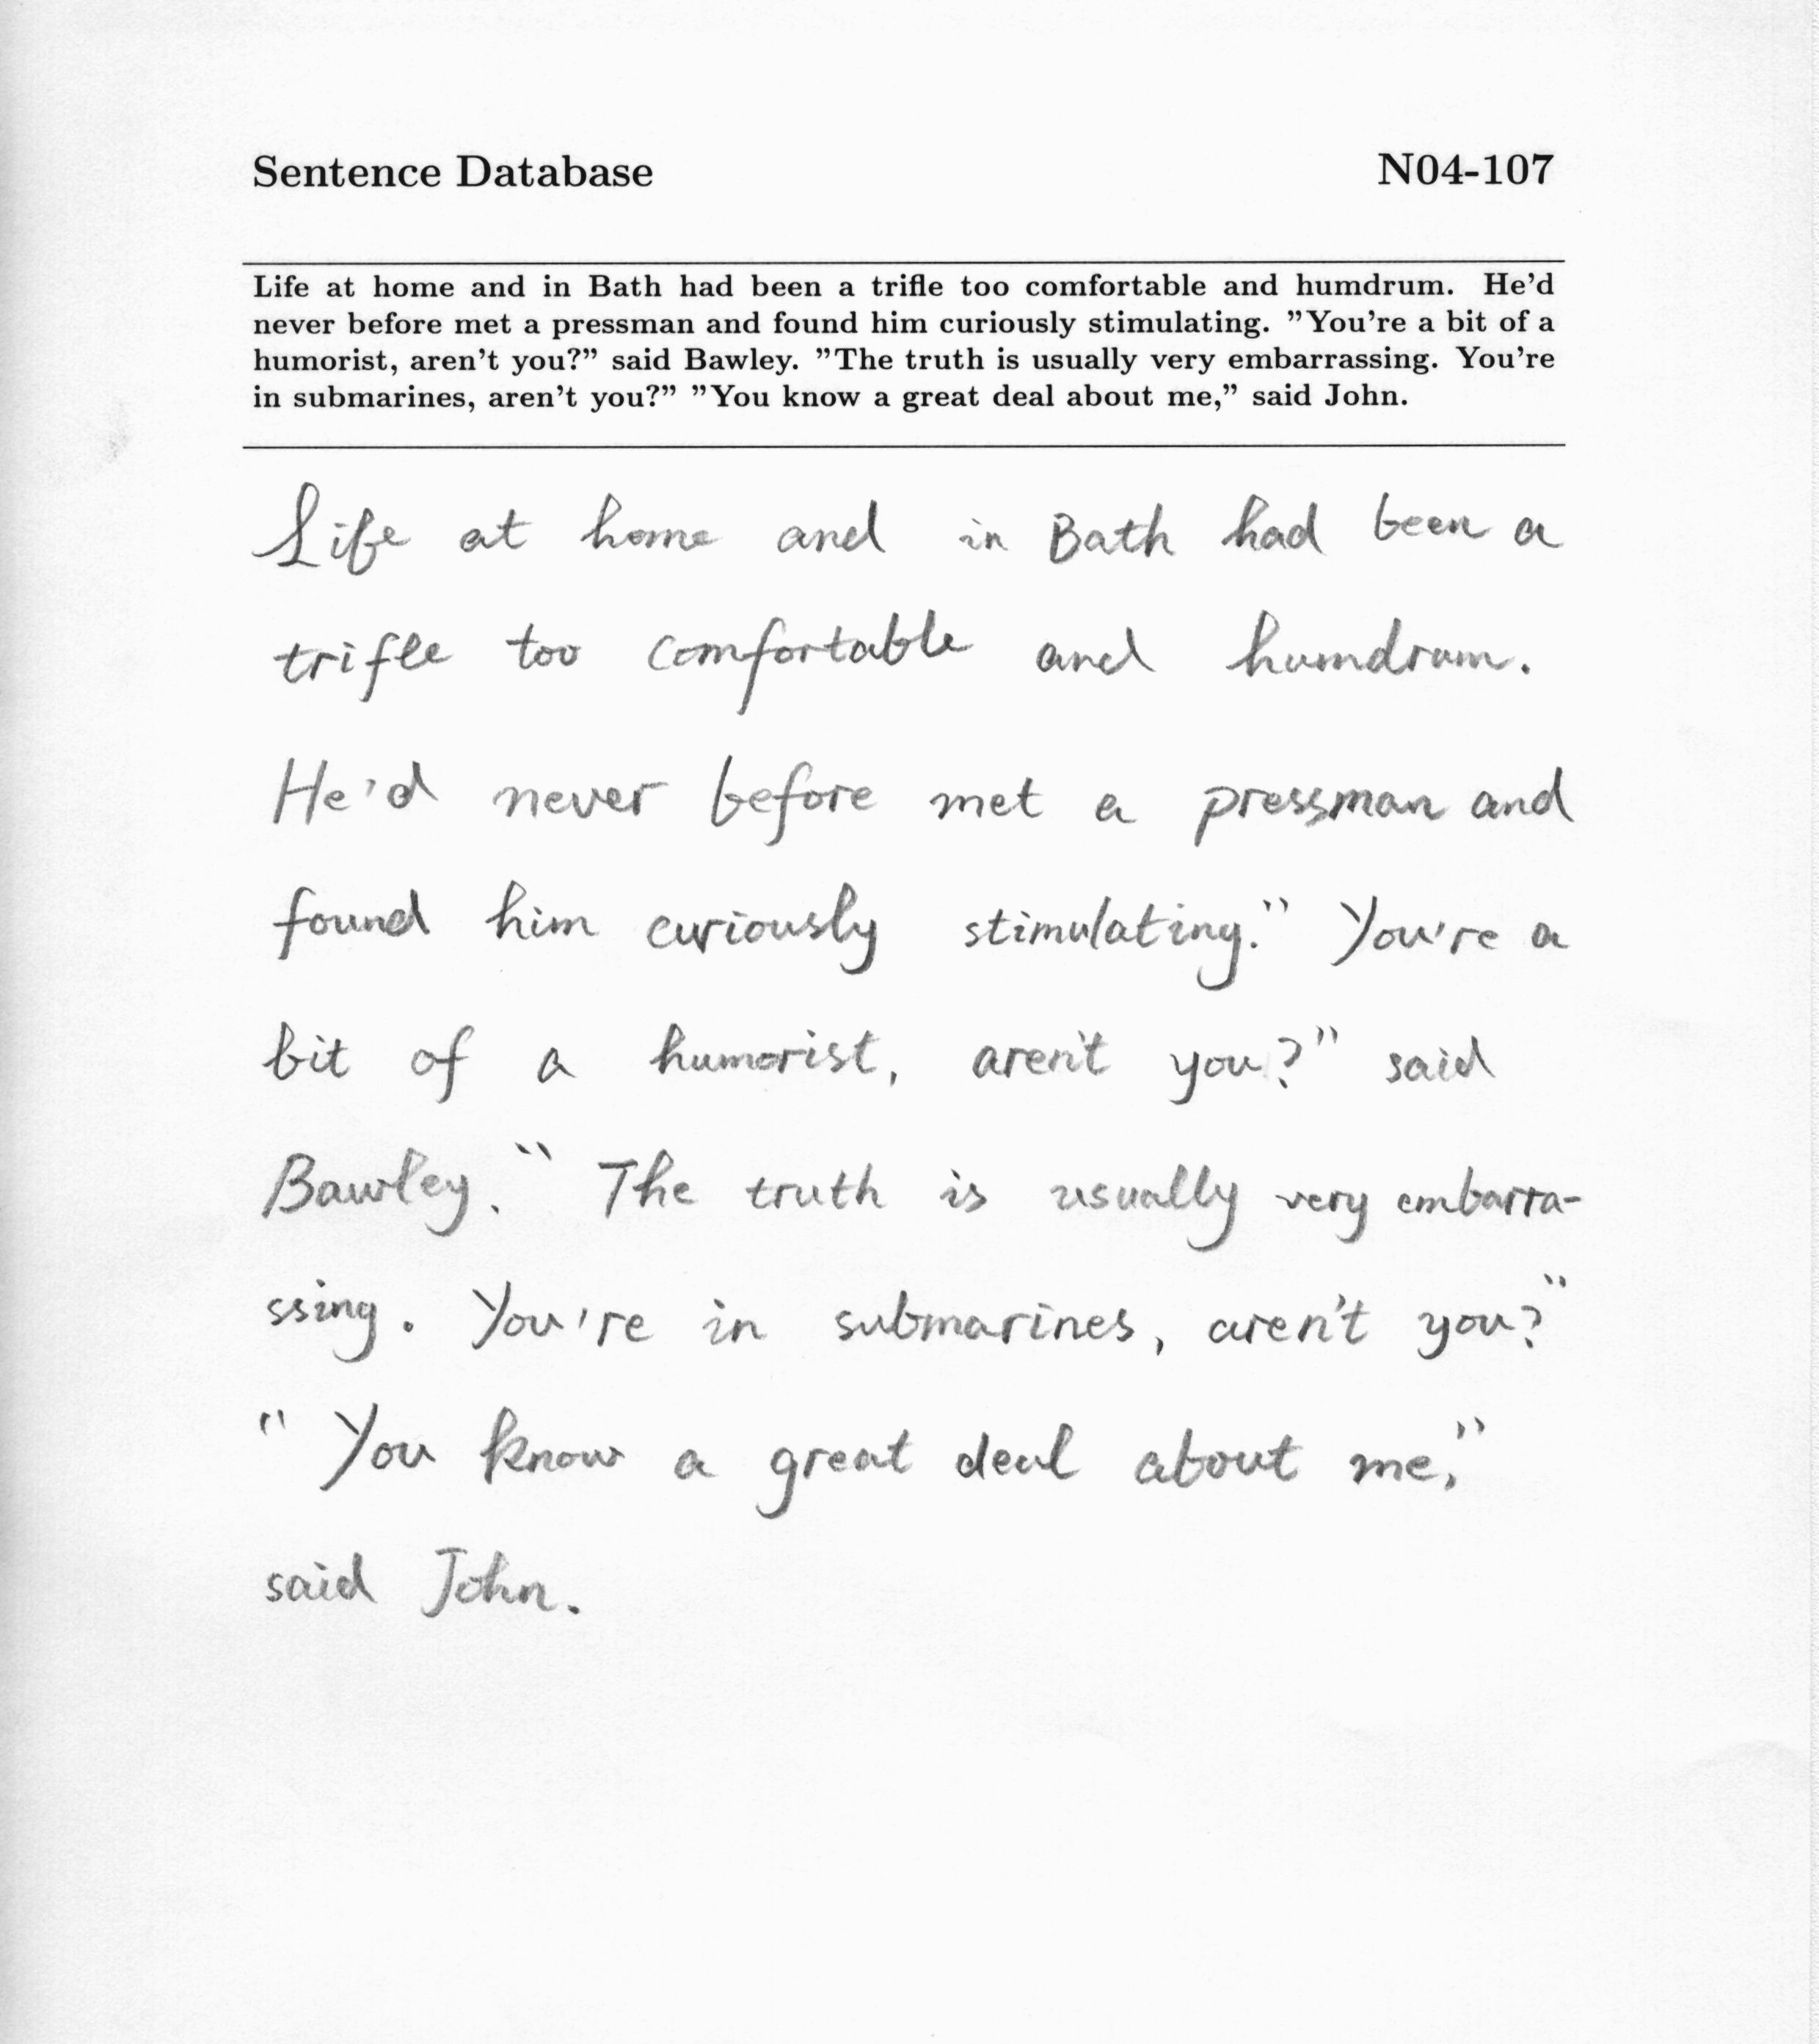 Sentence Database N04-107
Life at home and in Bath had been a trifle too comfortable and humdrum. He'd
never before met a pressman and found him curiously stimulating. "You're a bit of a
humorist, aren't you?" said Bawley. "The truth is usually very embarrassing. You're
in submarines, aren't you?" "You know a great deal about me," said John.
Life at home and in Bath had been a
trifle too comfortable and humdrum.
He'd never before met a pressman and
found him curiously stimulating." You're a
bit of a humorist, aren't you?" said
Bawley." The truth is usually very embarra-
ssing. You're in submarines, aren't you?"
" You know a great deal about me,"
said John.